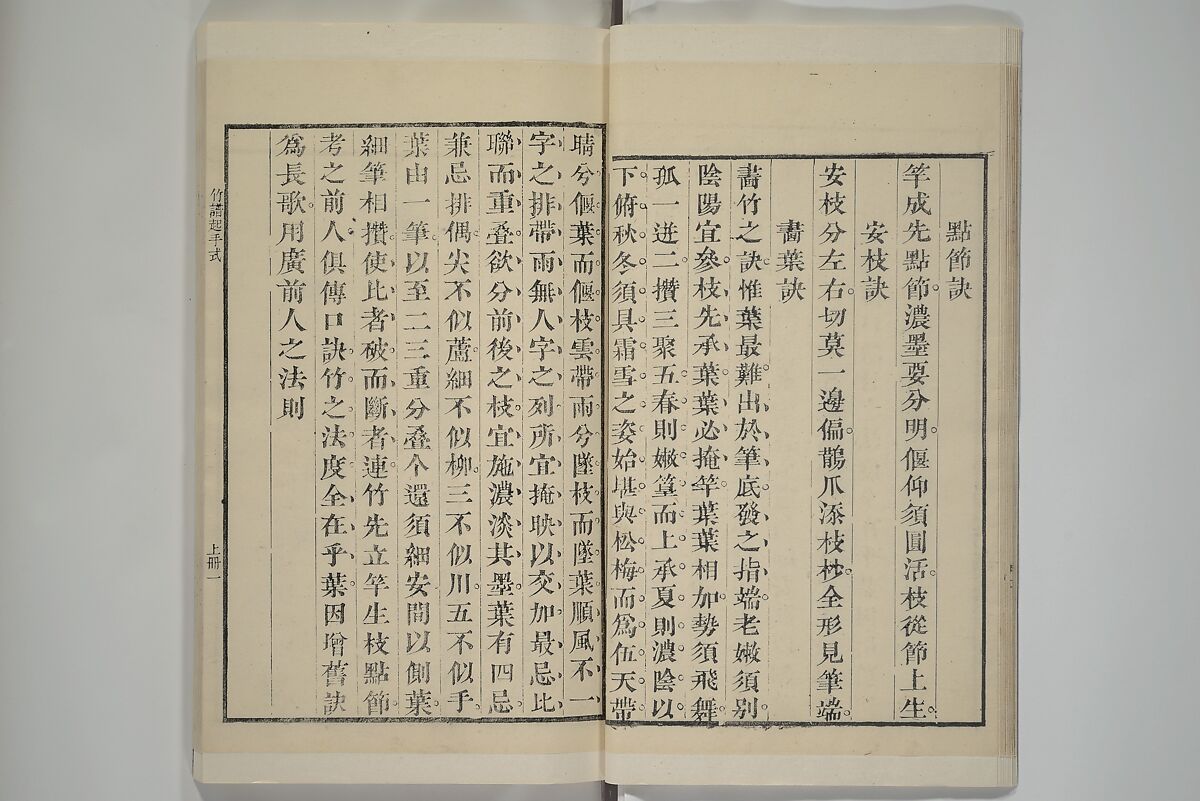 點節訣
竿成先點節。濃墨要分明。偃仰須圓活。枝從節上生。
安枝訣
安枝分左右。切莫一邊偏。鵲爪添枝杪。全形見筆端。
畵葉訣
畵竹之訣。惟葉最難。出於筆底。發之指端。老嫩須別。
陰陽宜參。枝先承葉。葉必掩竿。葉葉相加。勢須飛舞。
孤一迸二。攢三聚五。春則嫩篁而上承。夏則濃陰以
下俯。秋冬須具霜雪之姿。始堪與松梅而爲伍。天帶
晴兮偃葉而偃枝。雲帶雨兮墜枝而墜葉。順風不一
字之排。帶雨無人字之列。所宜掩映以交加。最忌比
聯而重叠。欲分前後之枝。宜施濃淡其墨。葉有四忌。
兼忌排偶。尖不似蘆。細不似柳。三不似川。五不似手。
葉由一筆。以至二三。重分叠个。還須細安。間以側葉。
細筆相攢。使比者破而斷者連。竹先立竿。生枝點節。
考之前人俱傳口訣。竹之法度。全在乎葉。因增舊訣
爲長歌。用廣前人之法則
竹譜起手式
上冊一